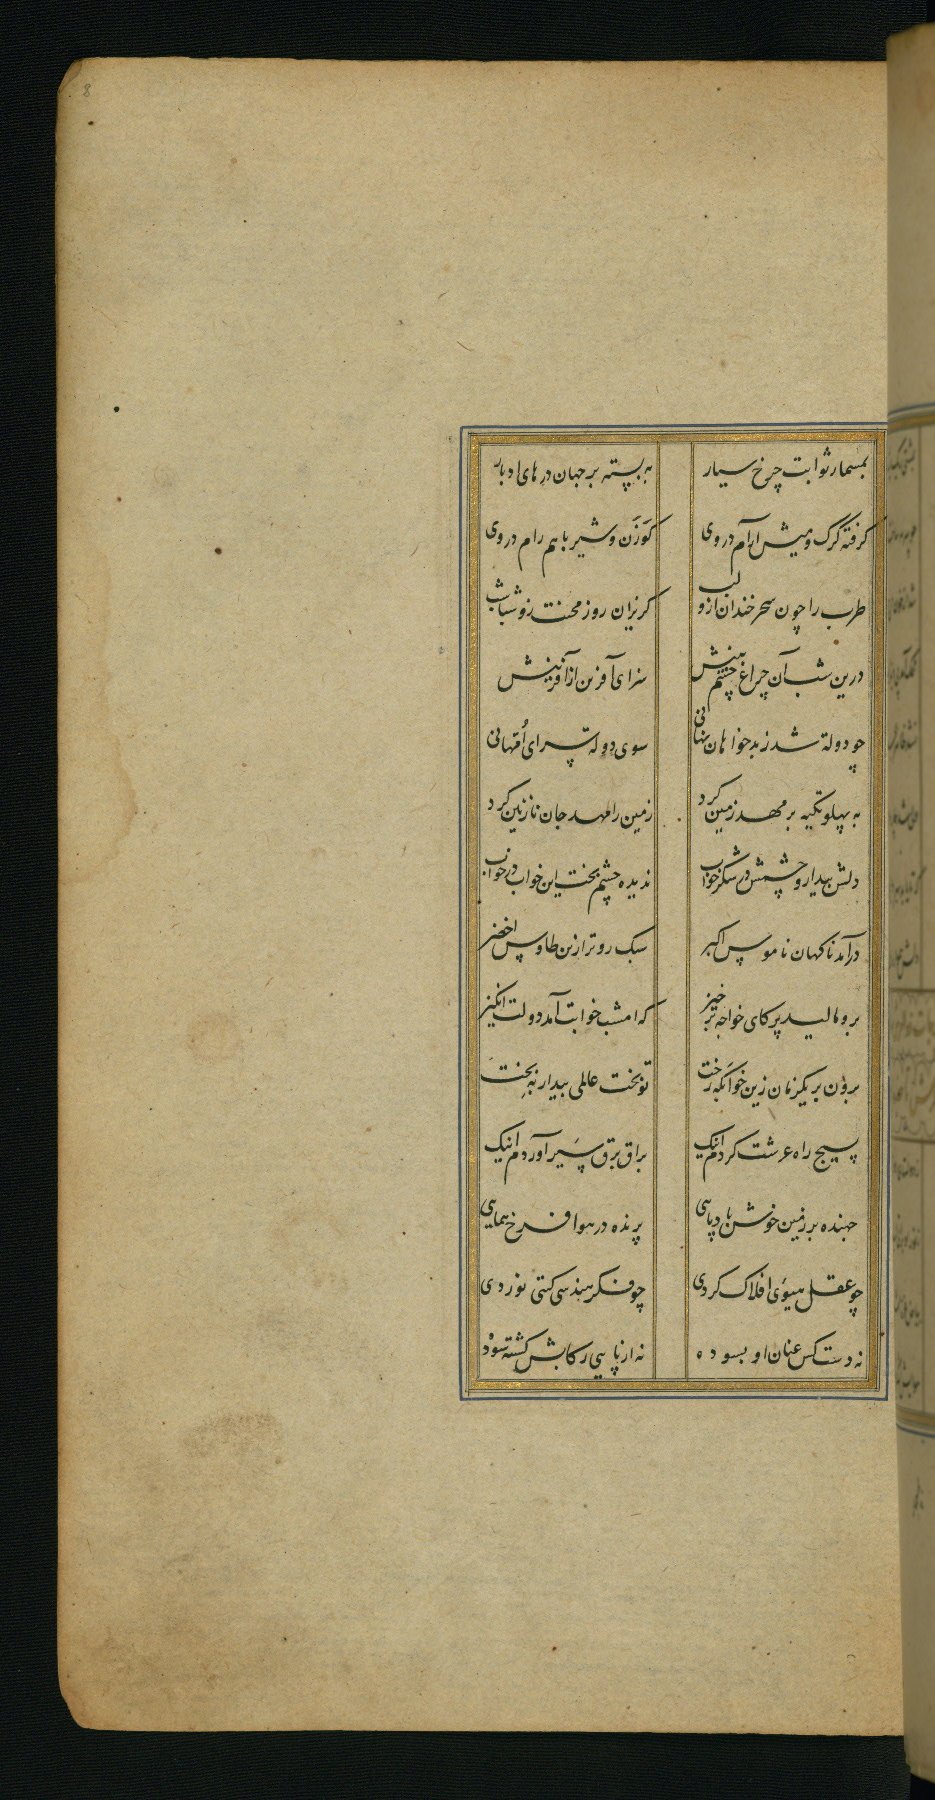 8
بمسمار ثوابت چرخ سیار به بسته بر جهان در های ادبار
گرفته گرگ و میش آرام در وی گوزن و شیر با هم رام در وی
طرب را چون سحر خندان ازو لب گریزان روز محنت زو شباشب
درین شب آن چراغ چشم بینش سزای آفرین از آفرینش
چو دولة شد ز بدخواهان نهانی سوی دولة سرای اُمّهانی
به پهلو تکیه بر مهد زمین کرد زمین را مهد جان نازنین کرد
دلش بیدار و چشمش در شکر خواب ندیده چشم بخت این خواب در خواب
درآمد ناگهان ناموس اکبر سبک رو تر ازین طاوس اخضر
برو مالید پر کای خواجه برخیز که امشب خوابت آمد دولت انگیز
برون بر یکزمان زین خوابگه رخت تو بخت عالمی بیدار به بخت
بسیج راه عرشت کردم اینک براق برق سیر آوردم اینک
جهنده بر زمین خوش بادپایی پرنده در هوا فرخ همایی
چو عقل سوی افلاک گردی چو فکر هندسی گیتی نوردی
نه دست کس عنان او بسوده نه از پایی رکابش گشته سوده